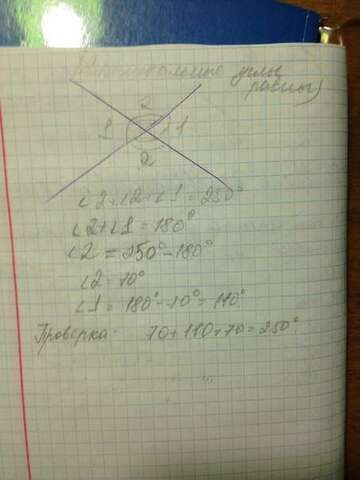 (Вертикальные углы
равны)
2
1 1
2
∠2+∠2+∠1=250°
∠2+∠1=180°
∠2=250°-180°
∠2=70°
∠1=180°-70°=110°
Проверка: 70+110+70=250°